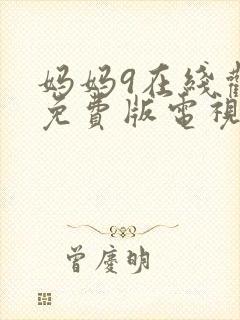 妈妈9在綫觀
免費版電視
曾慶明